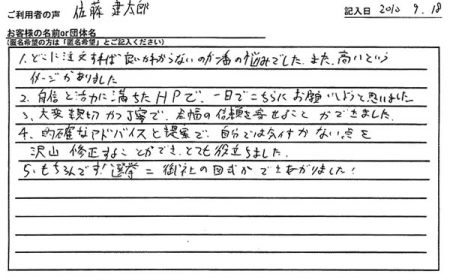 ご利用者の声 佐藤 建太郎 記入日 2010 9.18
お客様の名前or団体名
(匿名希望の方は「匿名希望」とご記入ください)
1. どこに注文すれば良いかわからないのが一番の悩みでした。また、高いという
イメージがありました
2. 自信と活力に満ちたHPで、一目でこちらにお願いしようと思いました
3. 大変親切かつ丁寧で、全幅の信頼を寄せることができました。
4. 的確なアドバイスと提案で、自分では気付かない点を
沢山修正することができ、とても役立ちました。
5. もちろんです!選挙=御社の図式ができあがりました!